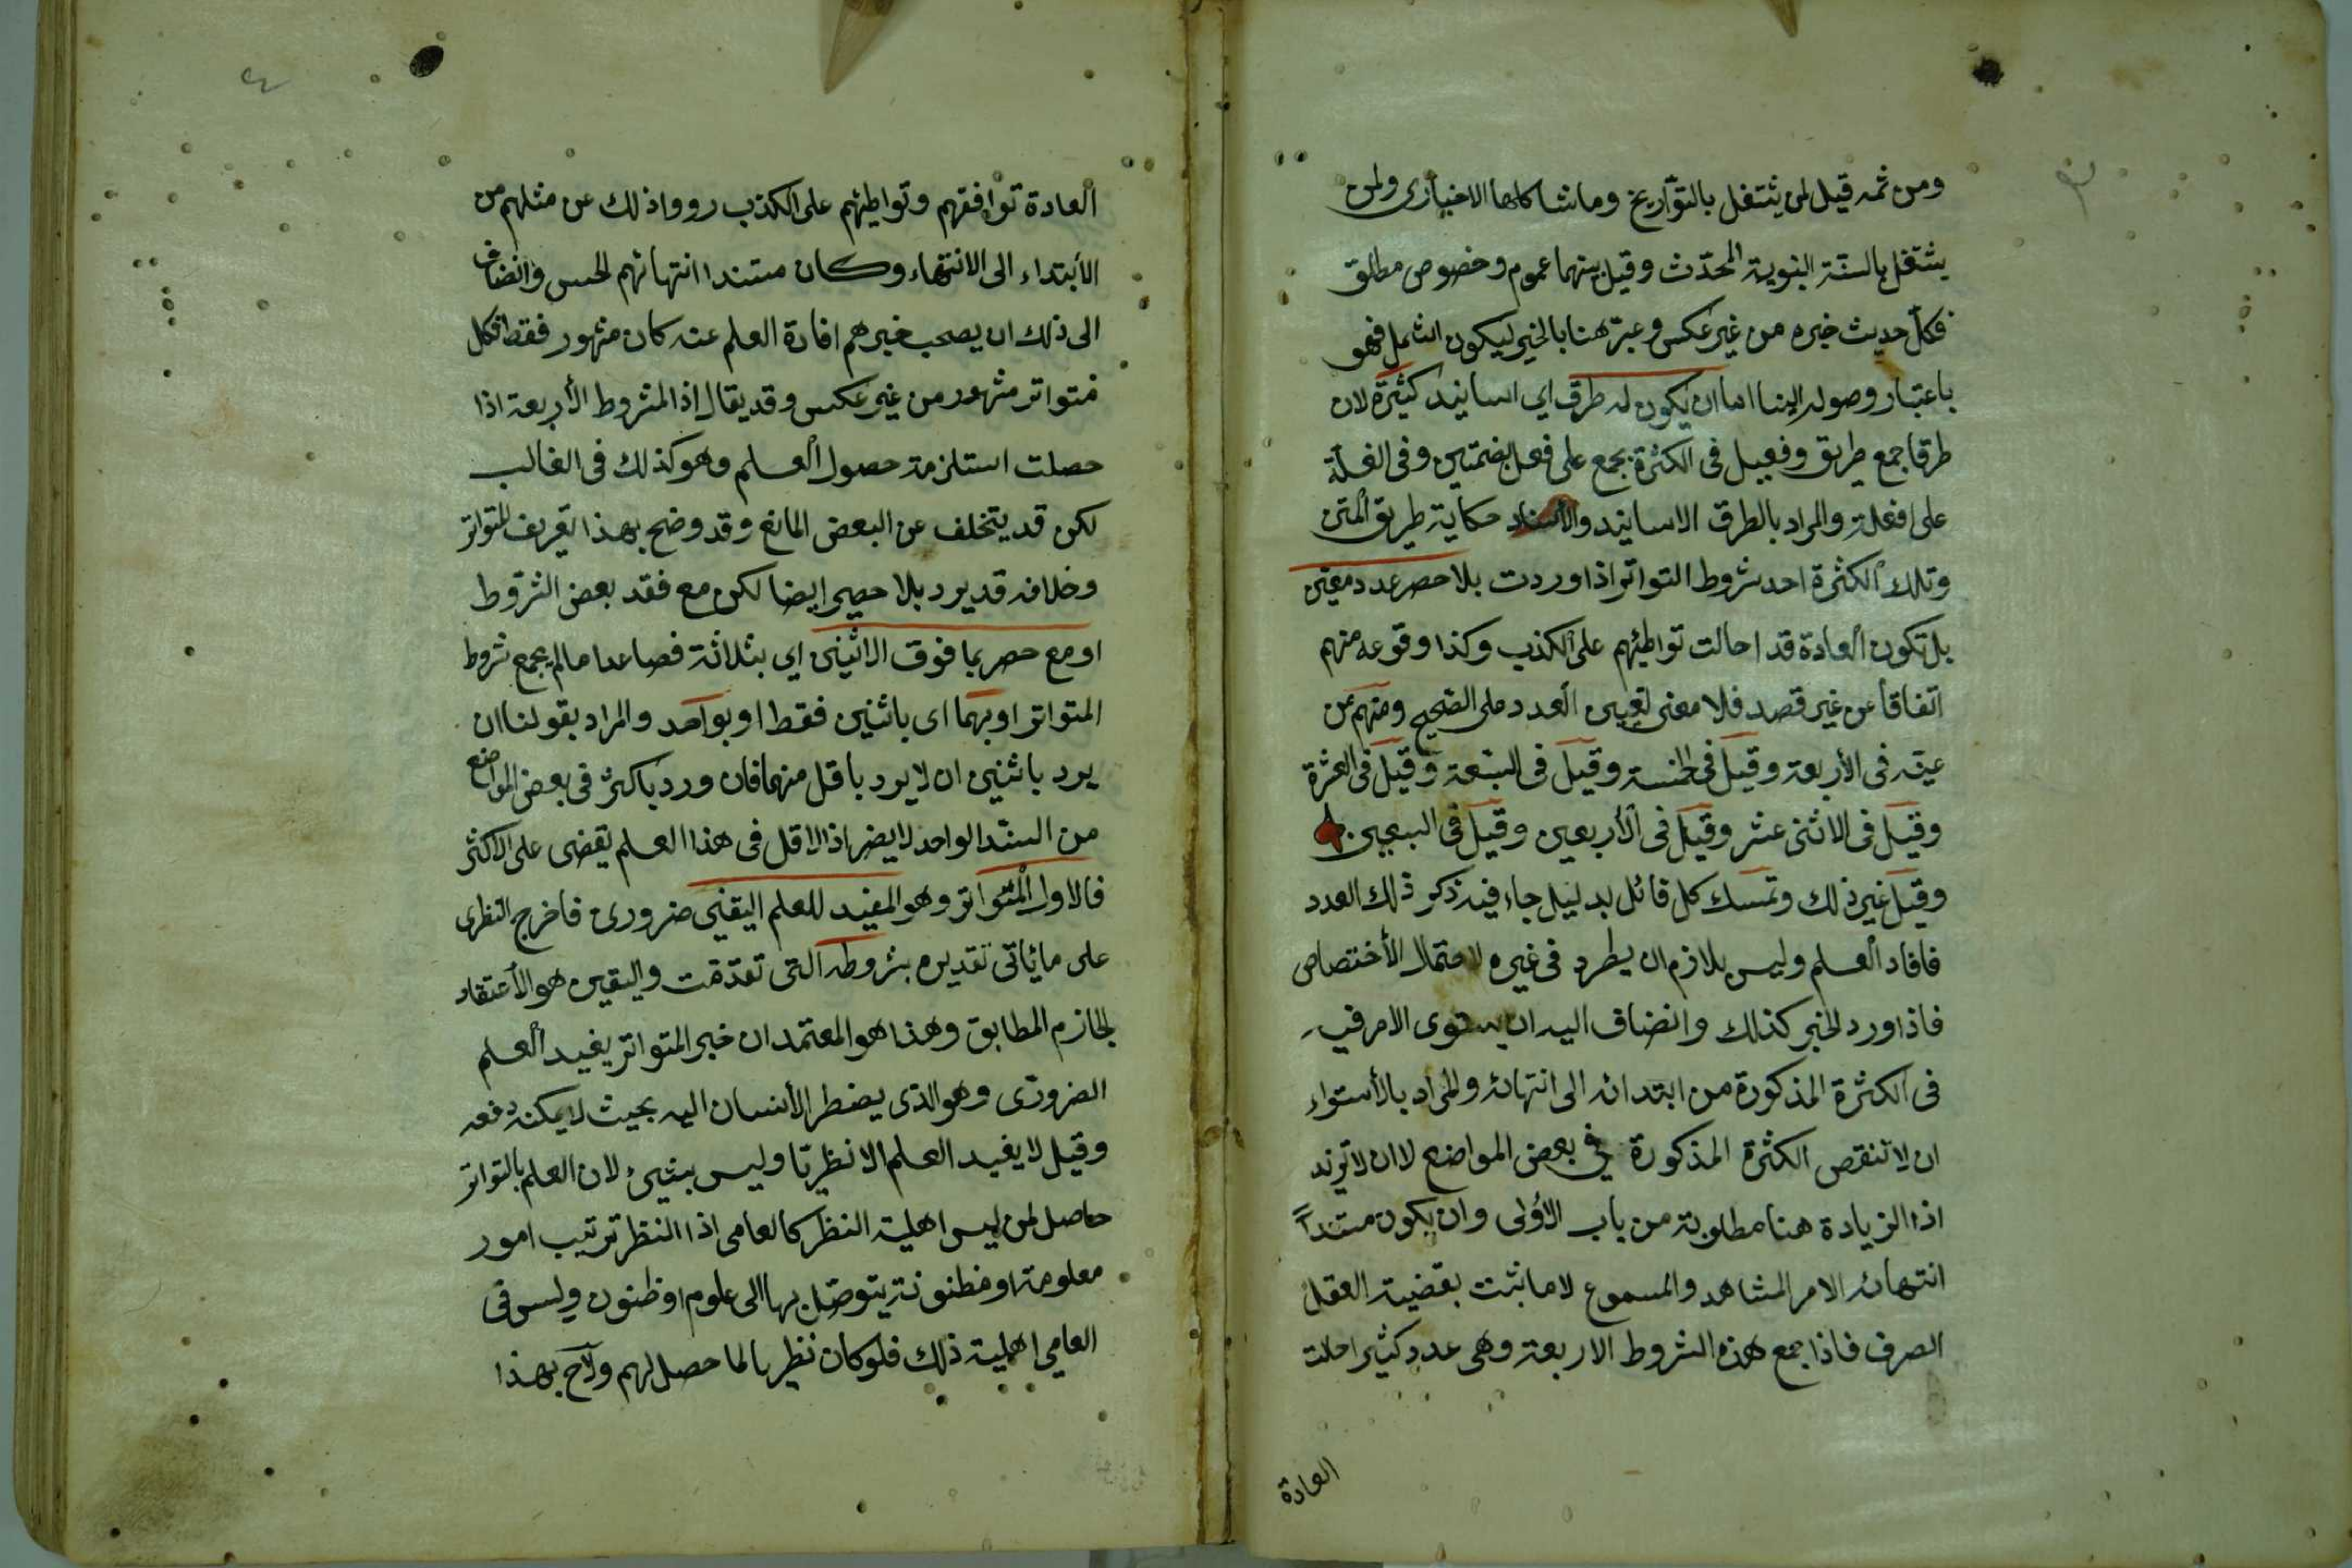 ومن ثمه قيل لمن يشتغل بالتوآريخ وما شاكلها الاخباري ولمن
يشتغل بالسنة النبوية المحدّث وقيل بينهما عموم وخصوص مطلق
فكلّ حديث خبره من غير عكس وعبّر هنا بالخبر ليكون اشمل فهو
باعتبار وصوله الينا اما ان يكون له طرق اي اسانيد كثيرة لان
طرقا جمع طريق وفعيل فى الكثرة يجمع على فعل بضمتين وفى القلّة
على افعلة والمراد بالطرق الاسانيد والأسناد حكاية طريق المتن
وتلك الكثرة احد شروط التواتر اذا وردت بلا حصر عدد معيّن
بل تكون العادة قد احالت تواطيئهم على الكذب وكذا وقوعه منهم
اتفاقا عن غير قصد فلا معنى لتعيين العدد على الصّحيح ومنهم من
عيّنه فى الأربعة وقيل فى الخمسة وقيل فى السّبعة وقيل فى العشرة
وقيل فى الاثنى عشر وقيل فى الأربعين وقيل فى السبعين
وقيل غير ذلك وتمسك كل قائل بدليل جاء فيه ذكر ذلك العدد
فافاد العلم وليس بلازم ان يطرد فى غيره لاحتمال الأختصاص
فاذا ورد الخبر كذلك وانضاف اليه ان يستوى الامر فيه
فى الكثرة المذكورة من ابتدائه الى انتهائه والمراد بالأستواء
ان لا تنقص الكثرة المذكورة في بعض المواضع لا ان لا تزيد
اذا الزيادة هنا مطلوبة من باب الأولى وان يكون مستنداً
انتهائه الامر المشاهد والمسموع لا ما ثبت بقضية العقل
الصرف فاذا جمع هذه الشروط الاربعة وهى عدد كثير احلت
العادة
العادة توافقهم وتواطيئهم على الكذب رووا ذلك عن مثلهم من
الأبتداء الى الانتهاء وكان مستندا انتهائهم الحس وانضاف
الى ذلك ان يصحب خبرهم افادة العلم عنه كان مشهور فقط فكل
متواتر مشهور من غير عكس وقد يقال اذ الشروط الأربعة اذا
حصلت استلزمة حصول العلم وهو كذلك فى الغالب
لكن قد يتخلف عن البعض المانع وقد وضح بهذا تعريف المتواتر
وخلافه قد يرد بلا حصر ايضا لكن مع فقد بعض الشروط
او مع حصر بما فوق الاثنين اي بثلاثة فصاعدا ما لم يجمع شروط
المتواتر او بهما اى باثنين فقط او بواحد والمراد بقولنا ان
يرد باثنين ان لا يرد باقل منهما فان ورد باكثر فى بعض المواضع
من السنّد الواحد لا يضر اذ الاقل فى هذا العلم يقضى على الاكثر
فالاول المتواتر وهو المفيد للعلم اليقني ضرورى فاخرج النظرى
على ما ياتى تقديره بشروطه التى تقدّمت واليقين هو الأعتقاد
الجازم المطابق وهذا هو المعتمد ان خبر المتواتر يفيد العلم
الضرورى وهو الذى يضطر الأنسان اليه بحيث لا يمكنه دفعه
وقيل لا يفيد العلم الا نظريّا وليس بشيئ لان العلم بالتواتر
حاصل لمن ليس اهلية النظر كالعامى اذا النظر ترتيب امور
معلومة او مظنونة يتوصّل بها الى علوم او ظنون وليس فى
العامي اهلية ذلك فلو كان نظريا لما حصل لهم ولاح بهذا